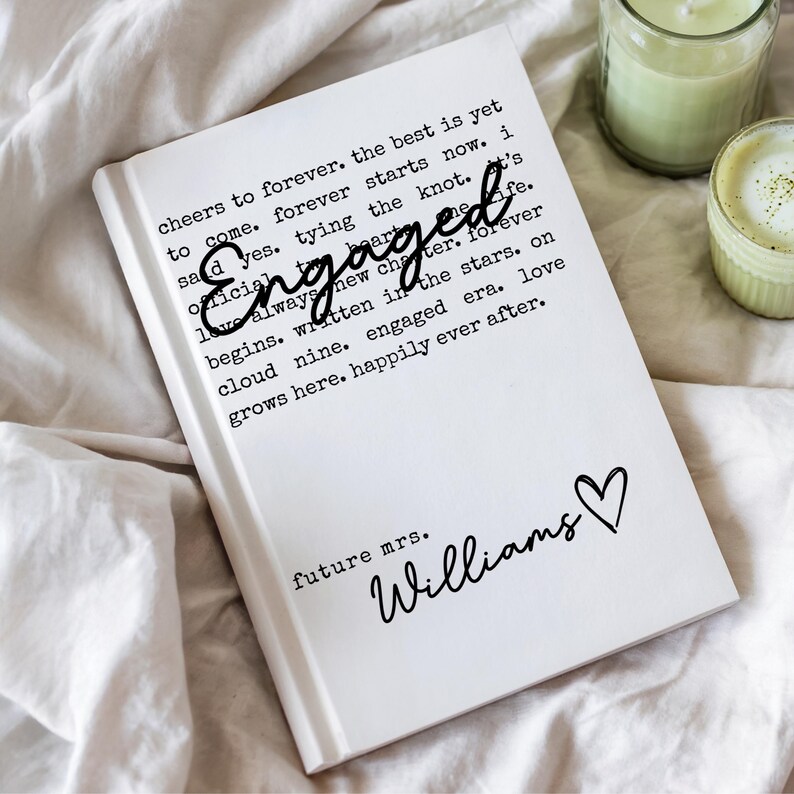 cheers to forever. the best is yet
to come. forever starts now. i
said yes. tying the knot. it's
official. two hearts one life.
love always. new chapter. forever
begins. written in the stars. on
cloud nine. engaged era. love
grows here. happily ever after.
Engaged
future mrs.
Williams